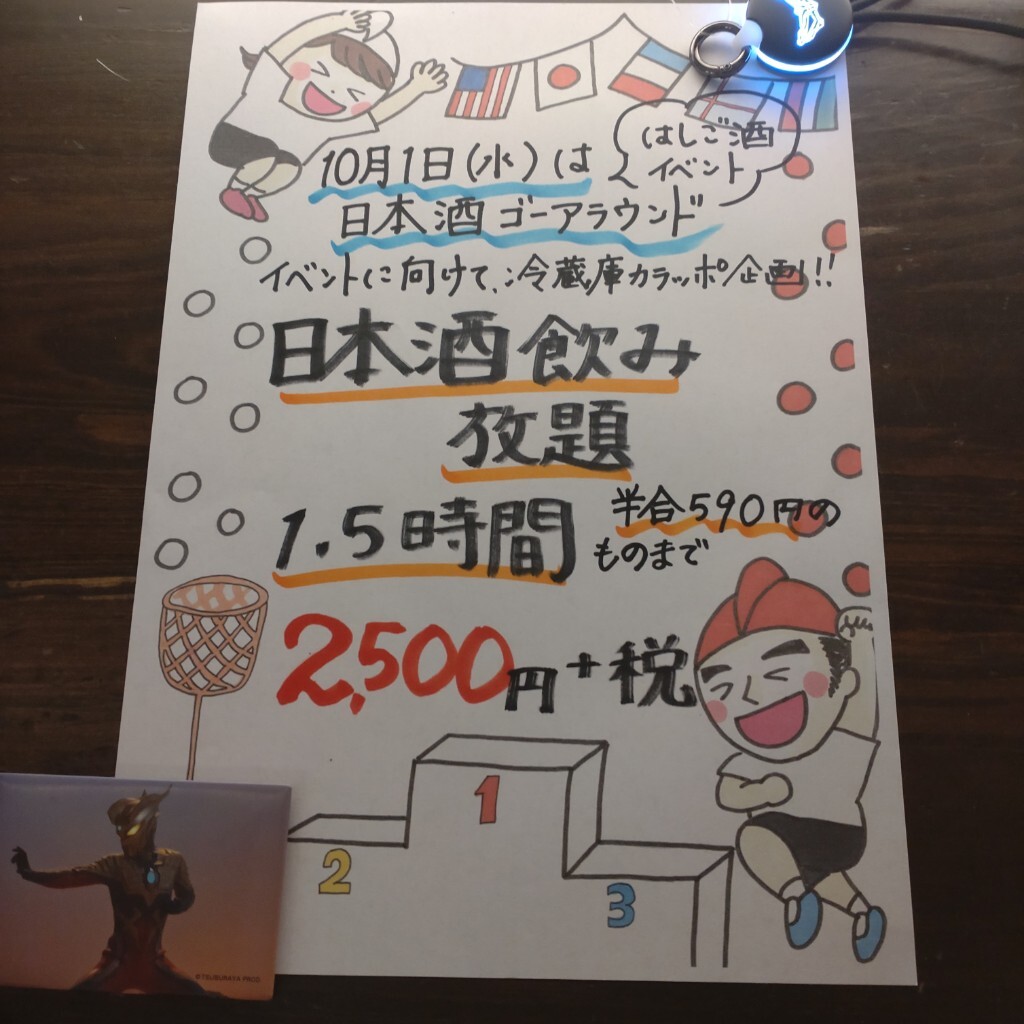 10月1日(水)は
はしご酒
イベント
日本酒ゴーアラウンド
イベントに向けて、冷蔵庫カラッポ企画!!
日本酒飲み
放題
1.5時間
半合590円の
ものまで
2,500円+税
1
2
3
©TSUBURAYA PROD.